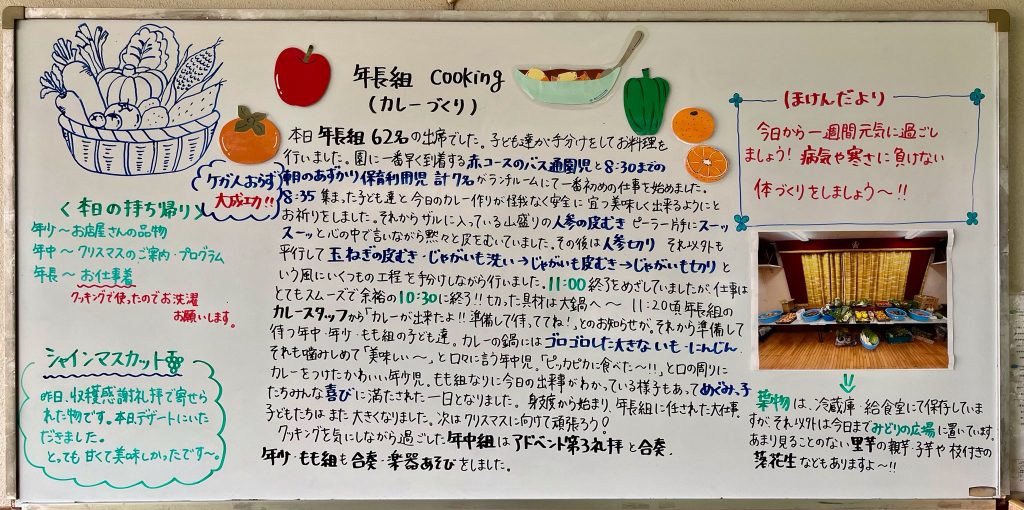 年長組 cooking
(カレーづくり)
本日 年長組 62名の出席でした。子ども達が手分けをしてお料理を
行いました。園に一番早く到着する赤コースのバス通園児と8:30までの
朝のあずかり保育利用児 計7名がランチルームにて一番初めの仕事を始めました。
8:35 集まった子ども達と今日のカレー作りが怪我なく安全に且つ美味しく出来るようにと
お祈りをしました。それからザルに入っている山盛りの人参の皮むき ピーラー片手にスーッ
スーッと心の中で言いながら黙々と皮をむいていました。その後は人参切り それ以外も
平行して玉ねぎの皮むき・じゃがいも洗い→じゃがいも皮むき→じゃがいも切りと
いう風にいくつもの工程を手分けしながら行いました。11:00終了をめざしていましたが、仕事は
とてもスムーズで余裕の10:30に終了!!切った具材は大鍋へ〜 11:20頃年長組の
カレースタッフから「カレーが出来たよ!!準備して待っててね!」とのお知らせが。それから準備して
待つ年中・年少・もも組の子ども達。カレーの鍋にはゴロゴロした大きないも・にんじん
それも噛みしめて「美味しい〜」と口々に言う年中児。「ピッカピカに食べた〜!!」と口の周りに
カレーをつけたかわいい年少児。もも組なりに今日の出来事がわかっている様子もあってめぐみっ子
たちみんな喜びに満たされた一日となりました。身支度から始まり、年長組に任された大仕事。
子どもたちはまた大きくなりました。次はクリスマスに向けて頑張ろう!
クッキングを気にしながら過ごした年中組はアドベント第3礼拝と合奏
年少・もも組も合奏・楽器あそびをしました。
ケガ人おらず
大成功!!
〈本日の持ち帰り〉
年少〜お店屋さんの品物
年中〜クリスマスのご案内・プログラム
年長〜お仕事着
クッキングで使ったのでお洗濯
お願いします。
シャインマスカット
昨日、収穫感謝礼拝で寄せら
れた物です。本日デザートにいた
だきました。
とっても甘くて美味しかったです〜。
ほけんだより
今日から一週間元気に過ごし
ましょう!病気や寒さに負けない
体づくりをしましょう〜!!
葉物は、冷蔵庫・給食室にて保存していま
すが、それ以外は今日までみどりの広場に置いています。
あまり見ることのない里芋の親芋・子芋や枝付きの
落花生などもありますよ〜!!